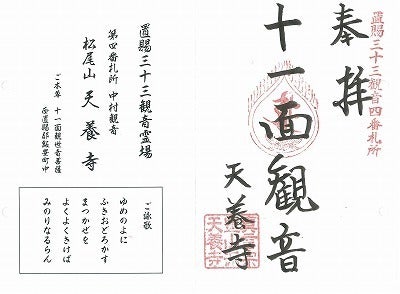 置賜三十三観音四番札所
奉拝
十一面観音
天養寺
置賜三十三観音霊場
第四番札所 中村観音
松尾山 天養寺
ご本尊 十一面観世音菩薩
西置賜郡飯豊町中
ご詠歌
ゆめのよに
ふきおどろかす
まつかぜを
よくよくきけば
みのりなるらん